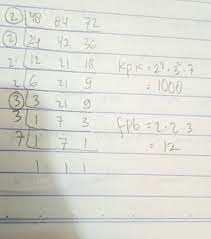 2 48 84 72
2 24 42 36
2 12 21 18
2 6 21 9
3 3 21 9
3 1 7 3
7 1 7 1
1 1 1
KPK = 2⁴ · 3² · 7
= 1008
fpb = 2 · 2 · 3
= 12